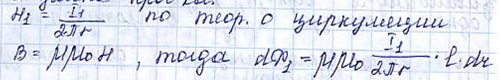 H₁ = I₁/2πr по теор. о циркуляции
B = μμ₀H , тогда dФ₁ = μμ₀ I₁/2πr · l · dr